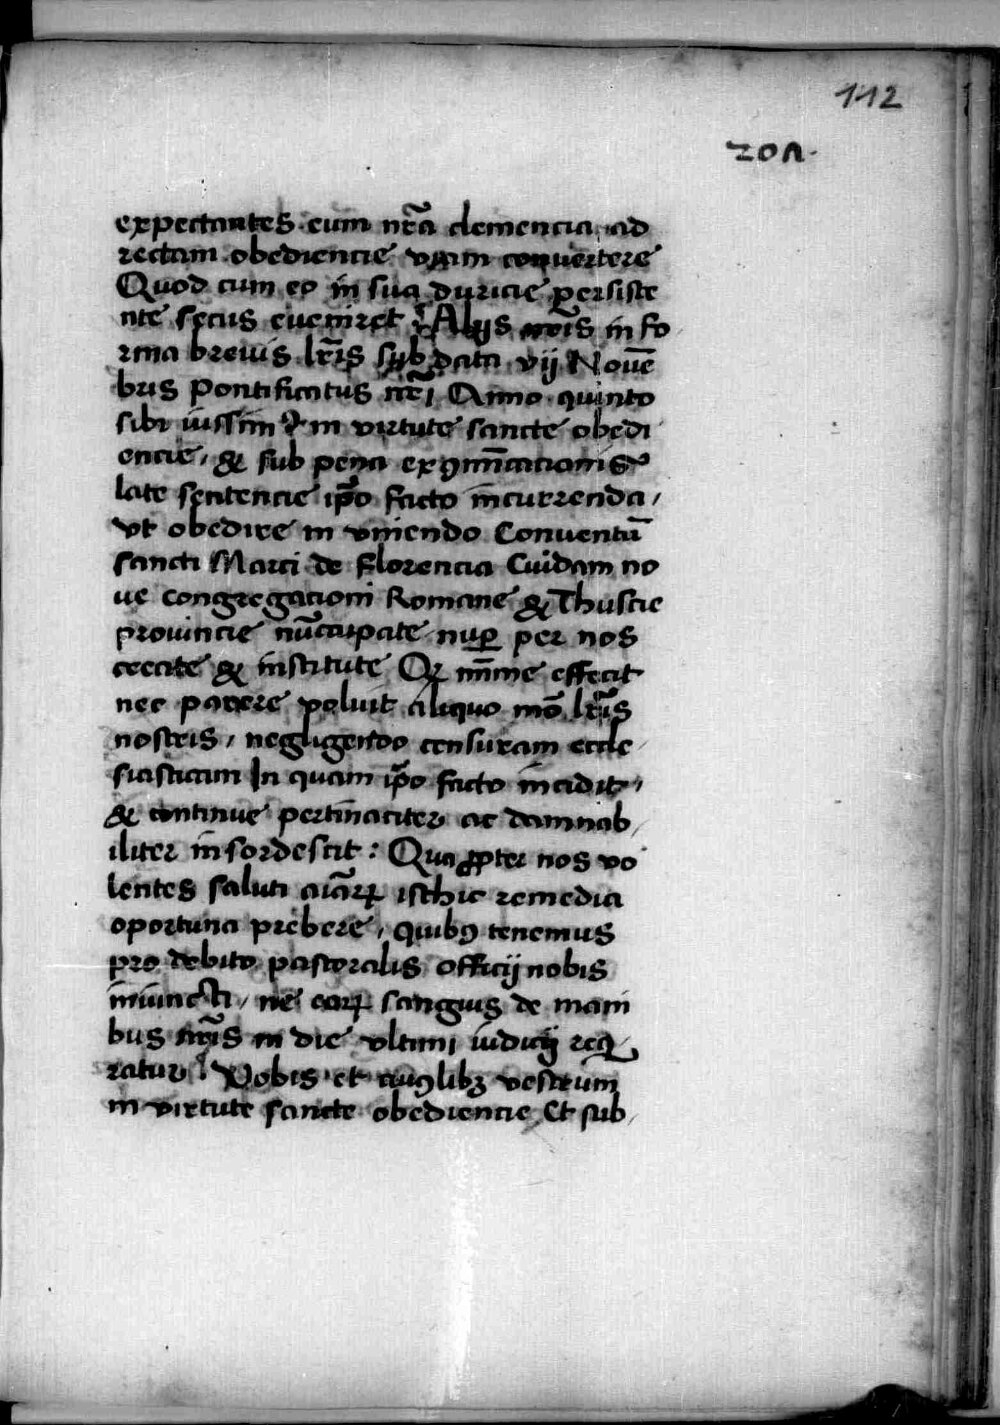 112
201.
expectantes eum nr̃a clemencia ad
rectam obediencie viam convertere
Quod cum eo in sua duricie persiste
nte secus eveniret Alijs nr̃is in fo
rma brevis lr̃is sub data vij Novẽ
bris Pontificatus nr̃i Anno quinto
sibi iussim⁹ in virtute sancte obedi
encie, & sub pena excõmunicationis
late sententie ip̃o facto incurrenda,
vt obedire in vniendo Conventũ
sancti Marci de Florencia Cuidam no
ve congregacioni Romane & Thuscie
provincie nũcupate nup̱ per nos
create & institute Qꝫ mĩme effecit
nec parere voluit aliquo mõ lr̃is
nostris, negligendo censuram eccle
siasticam In quam ip̃o facto incidit,
& continue pertinaciter ac damnab
iliter insordescit: Qua ꝓpter nos vo
lentes saluti aĩarꝝ isthic remedia
oportuna prebere, quibꝰ tenemus
pro debito pastoralis officij nobis
iniuncti, ne eorꝝ sanguis de mani
bus nr̃is in die vltimi iudicij req̃
ratur Vobis et cuiꝰlibꝫ vestrum
in virtute sancte obediencie Et sub